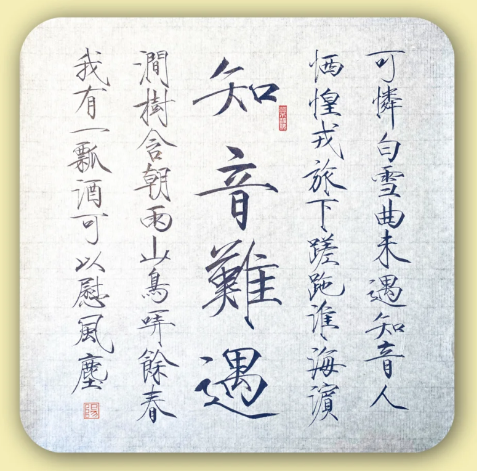 可憐白雪曲未遇知音人
恓惶戎旅下蹉跎淮海濱
知音難遇
澗樹含朝雨山鳥哢餘春
我有一瓢酒可以慰風塵